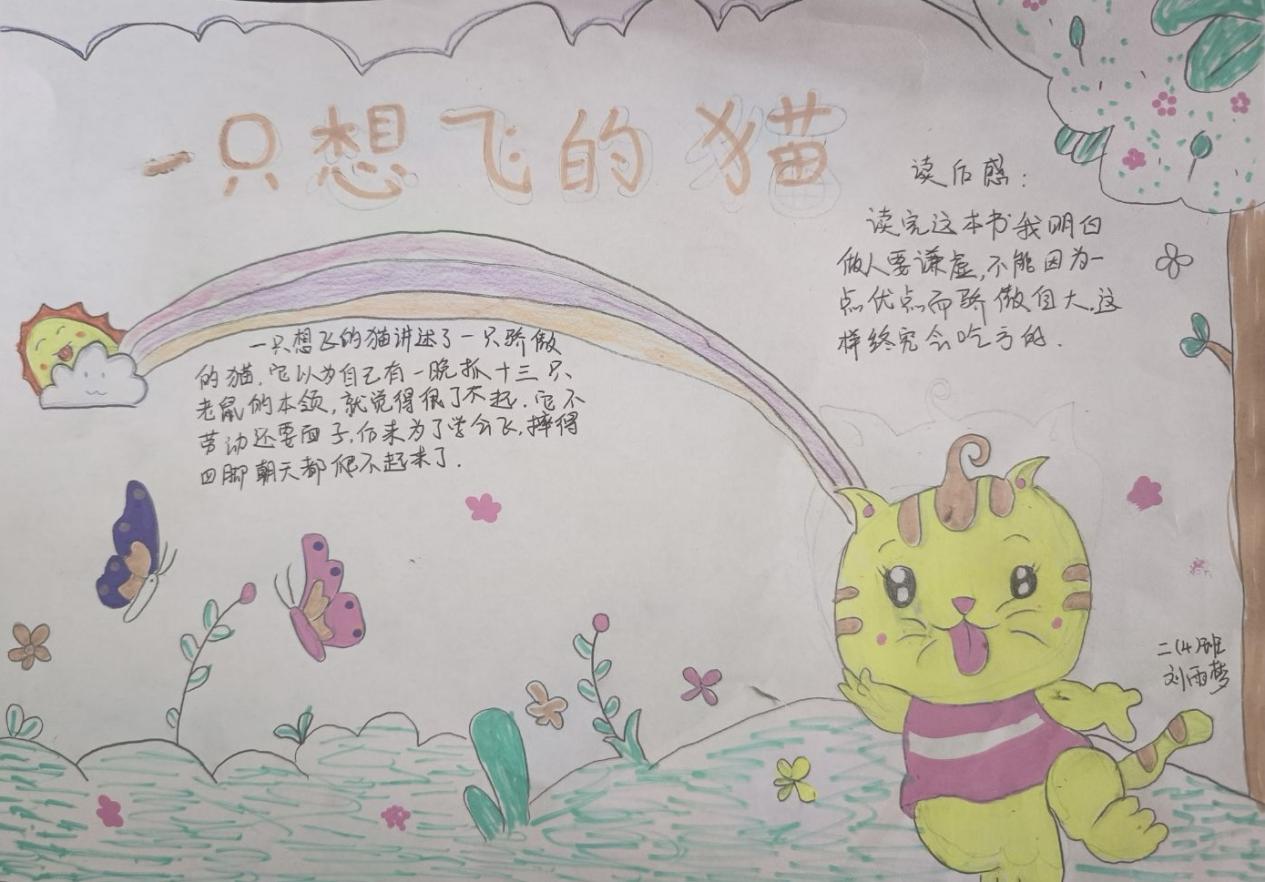 一只想飞的猫
一只想飞的猫讲述了一只骄傲
的猫.它以为自己有一晚抓十三只
老鼠的本领,就觉得很了不起.它不
劳动还要面子,后来为了学会飞,摔得
四脚朝天都爬不起来了.
读后感:
读完这本书我明白
做人要谦虚,不能因为一
点优点而骄傲自大.这
样终究会吃亏的.
二(4)班
刘雨梦